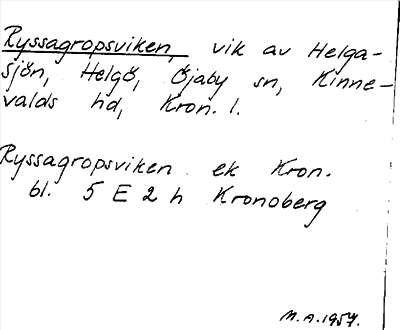 Ryssagropsviken, vik av Helga-
sjön, Helgö, Öjaby sn, Kinne-
valds hd, Kron. l.
Ryssagropsviken ek Kron.
bl. 5 E 2 h Kronoberg
M.A. 1957.